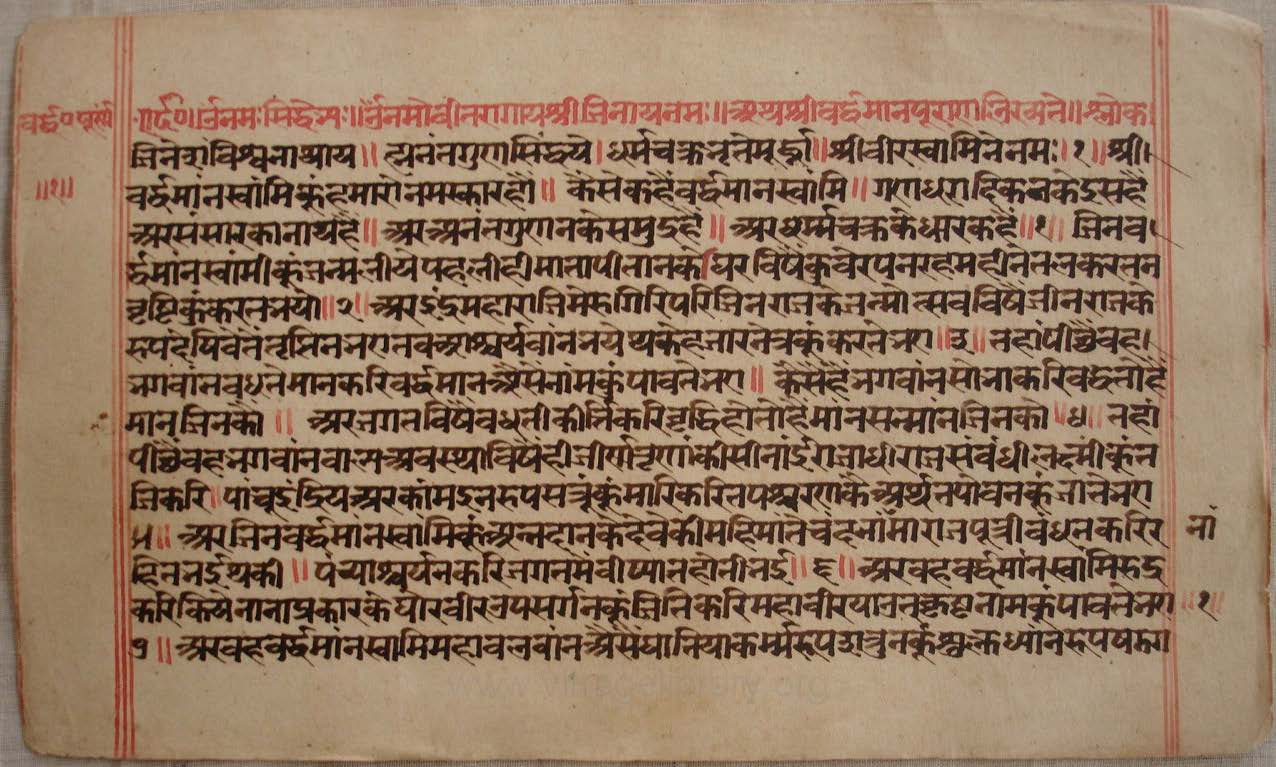 वर्द्ध० पुराण
॥ॐनमः सिद्धेभ्यः॥ॐनमो वीतरागाय श्री जिनाय नमः॥अथ श्री वर्द्धमानपुराण लिख्यते॥श्लोकः
जिनेशे विश्वनाथाय॥ ह्यनंतगुणसिंद्धये।धर्मचक्रनृतेमूर्द्ध्ना॥श्रीवीरस्वामिनेनमः।१॥श्री।
॥१॥
वर्द्धमांनस्वांमिकुंहमारोनमस्कारहो॥ कैसेकहैवर्द्धमानस्वांमि॥गणधरादिकनकेईसहै
अरसंसारकानाथहै॥अरअनंतगुणनकेसमुद्रहै॥अरधर्म्मचक्रकेधारकहै॥१॥ जिनव
र्द्धमांनस्वांमीकूंजन्मलीयेपहलीहीमातापीताकेघरविषैकुवेरपनरहमहीनेतलकरतन
वृष्टिकुंकरतेनयो॥२॥अरइंद्रमहाराजिमेरुगिरिपरिजिनराजकेजन्मोत्सवविषैजीनराजके
रुपदेषिवेतैंतृप्तिननएतवआश्चर्यवांननयेथकेहजारनेत्रकुंकरतेनए॥३॥तहांपीछैवह।
नगवांनवधतेमानकरिवर्द्धमांनअैसेनांमकुंपावतेनए॥ कैसेहैनगवांनसोनाकरिवढतोहै
मानजिनको॥ अरजगतविषैवधतीकीर्तिकरिवृद्धिहोतोहैमांनसन्मांनजिनको॥४॥तहां
पीछैवहनगवांनवाल्यअवस्थाविषैहीजीर्णतृणकीसीनांईराजाधीराजसंवंधीलक्ष्मीकूंत
जिकरि।पांचूइंद्रियअरकांमइनरुपसत्रुंकूंमारिकरितपश्चरणकेअर्थतपोवनकूंजातेनए
५॥अरजिनवर्द्धमांनस्वांमिकूंअन्नदानकेदेवेकीमहिमातैंचंदनांमाराजपुत्रीवंधनकरिर
नां
हितनईथकी॥पंच्याश्चर्यनकरिजगतमैंवीष्यातहोतीनई॥६॥अरवहवर्द्धमांनस्वांमिरुद्र
करिकियेनानाप्रकारकेघोरवीरउपसर्गनकूंजितिकरिमहावीरपाउत्कृष्टनांमकुंपावतेनए॥१॥
७॥अरवहवर्द्धमांनस्वांमिमहावलवांनअैसेघातियाकर्म्मरूपशत्रुनकूंशुक्लध्यांनरुपषडग